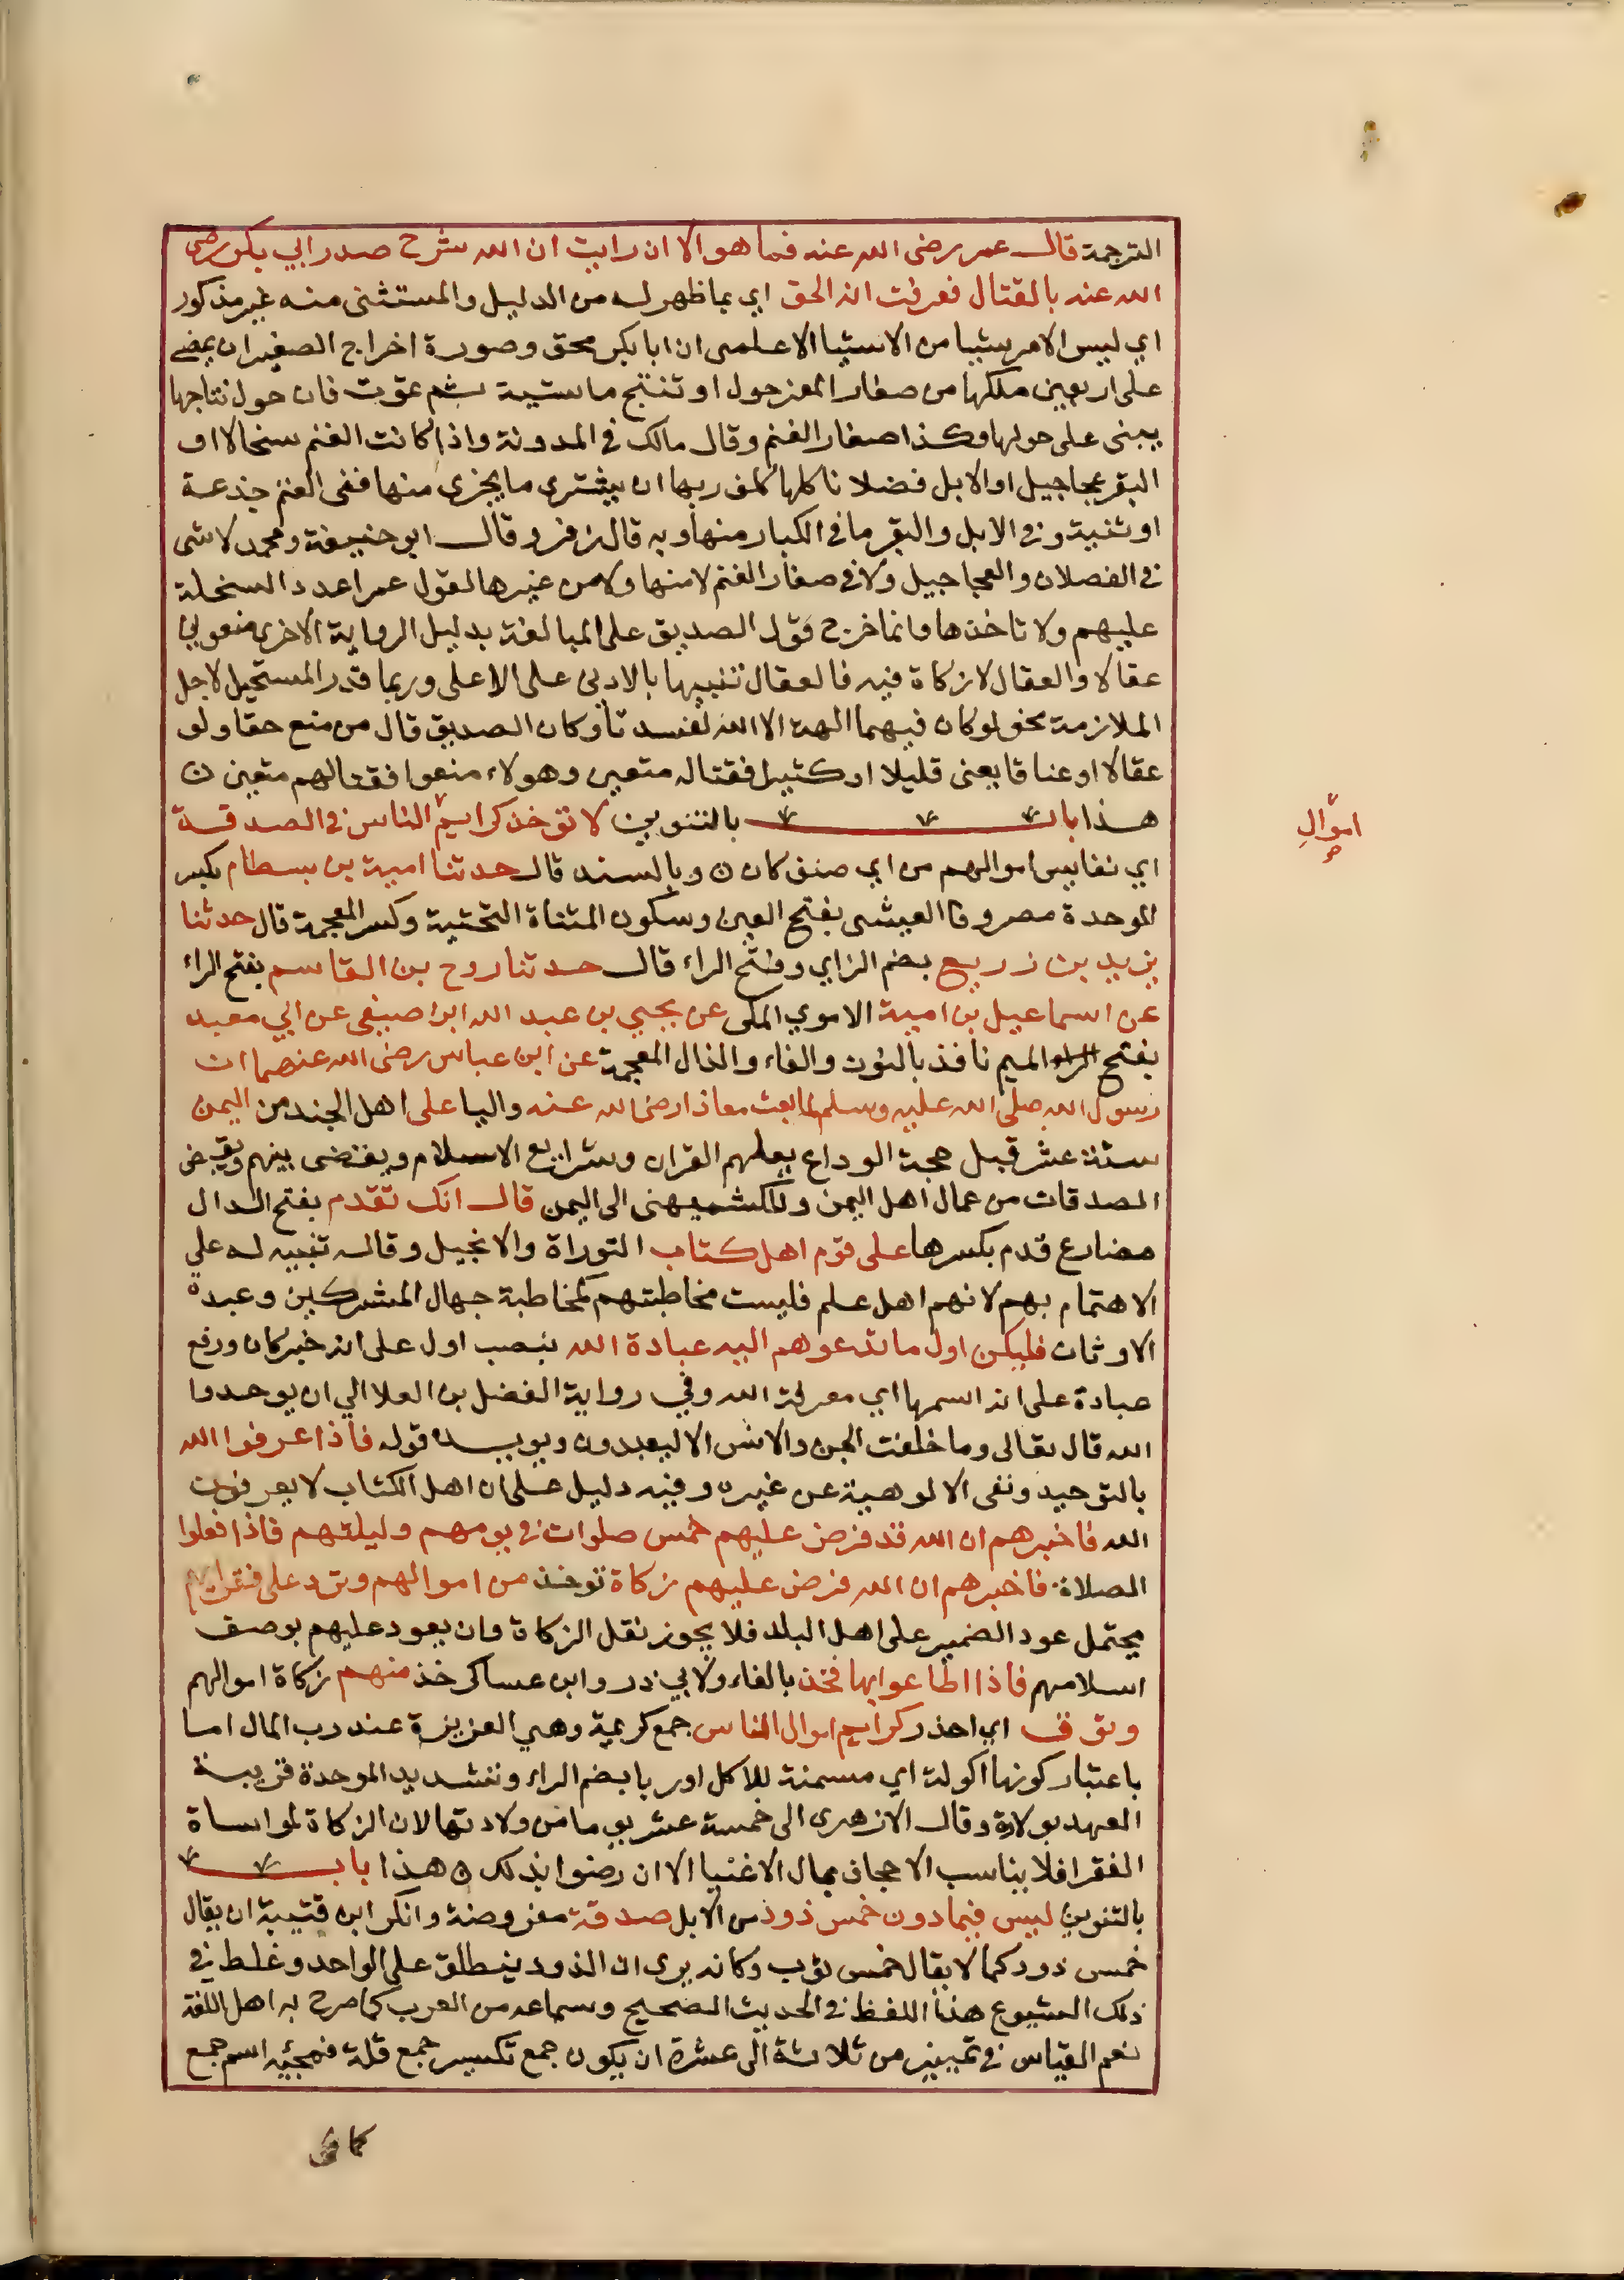 الترجمة قال عمر رضى الله عنه فما هو الا ان رايت ان الله شرح صدر ابي بكر رضى
الله عنه بالقتال فعرفت انه الحق اي بما ظهر له من الدليل والمستثنى منه غير مذكور
اي ليس الامر شيا من الاشيا الا علمى ان ابا بكر محق وصورة اخراج الصغير ان يمضى
على اربعين ملكها من صغار المعز حول او تنتج ماشية ثم تموت فان حول نتاجها
يبنى على حولها وكذا صغار الغنم وقال مالك في المدونة واذا كانت الغنم سخالا او
البقر عجاجيل او الابل فصلانا كلها كلف ربها ان يشترى ما يجزى منها ففى الغنم جذعة
او ثنية وفي الابل والبقر ما في الكبار منها وبه قال زفر وقال ابو حنيفة ومحمد لا شى
في الفصلان والعجاجيل ولا في صغار الغنم لا منها ولا من غيرها لقول عمر اعدد السخلة
عليهم ولا تاخذها وانما خرج قول الصديق على المبالغة بدليل الرواية الاخرى منعوني
عقالا والعقال لا زكاة فيه فالعقال تنبيها بالادنى على الاعلى وربما قدر المستحيل لاجل
الملازمة نحو لو كان فيهما الهة الا الله لفسدتا وكان الصديق قال من منع حقا ولو
عقالا او عناقا يعنى قليلا او كثيرا فقتاله متعين وهولاء منعوا فقتالهم متعين ن
هذا باب بالتنوين لا توخذ كرايم الناس في الصدقة
اموال
صح
اي نفايس اموالهم من اي صنف كان ن وبالسند قال حدثنا امية بن بسطام بكسر
الموحدة مصروفا العيشى بفتح العين وسكون المثناة التحتية وكسر المعجمة قال حدثنا
يزيد بن زريع بضم الزاي وفتح الراء قال حدثنا روح بن القاسم بفتح الراء
عن اسماعيل بن امية الاموي المكى عن يحيي بن عبد الله ابن صيفى عن ابي معبد
بفتح الميم نافذ بالنون والفاء والذال المعجمة عن ابن عباس رضى الله عنهما ان
رسول الله صلى الله عليه وسلم لما بعث معاذا رضى الله عنه واليا على اهل الجند من اليمن
سنة عشر قبل حجة الوداع يعلمهم القران وشرايع الاسلام ويقضى بينهم ويقبض
الصدقات من عمال اهل اليمن وللكشميهنى الى اليمن قال انك تقدم بفتح الدال
مضارع قدم بكسرها على قوم اهل كتاب التوراة والانجيل وقاله تنبيه له على
الاهتمام بهم لانهم اهل علم فليست مخاطبتهم كمخاطبة جهال المشركين وعبدة
الاوثان فليكن اول ما تدعوهم اليه عبادة الله بنصب اول على انه خبر كان ورفع
عبادة على انه اسمها اي معرفة الله وفي رواية الفضل بن العلا الي ان يوحدوا
الله قال تعالى وما خلقت الجن والانس الا ليعبدون ويويده قوله فاذا عرفوا الله
بالتوحيد ونفى الالوهية عن غيره وفيه دليل على ان اهل الكتاب لا يعرفون
الله فاخبرهم ان الله قد فرض عليهم خمس صلوات في يومهم وليلتهم فاذا فعلوا
الصلاة فاخبرهم ان الله فرض عليهم زكاة توخذ من اموالهم وترد على فقرايهم
يحتمل عود الضمير على اهل البلد فلا يجوز نقل الزكاة وان يعود عليهم بوصف
اسلامهم فاذا اطاعوا بها فخذ بالفاء ولابي ذر وابن عساكر خذ منهم زكاة اموالهم
وتوق اي احذر كرايم اموال الناس جمع كريمة وهي العزيزة عند رب المال اما
باعتبار كونها اكولة اي مسمنة للاكل او ربا بضم الراء وتشديد الموحدة قريبة
العهد بولادة وقال الازهرى الى خمسة عشر يوما من ولادتها لان الزكاة لمواساة
الفقرا فلا يناسب الاجحاف بمال الاغنيا الا ان رضوا بذلك ن هذا باب
بالتنوين ليس فيما دون خمس ذود من الابل صدقة مفروضة وانكر ابن قتيبة ان يقال
خمس ذود كما لا يقال خمس ثوب وكانه يرى ان الذود ينطلق على الواحد وغلط في
ذلك لشيوع هذا اللفظ في الحديث الصحيح وسماعه من العرب كما صرح به اهل اللغة
نعم القياس في تمييز من ثلاثة الى عشرة ان يكون جمع تكسير جمع قلة فمجئيه اسم جمع
كما في